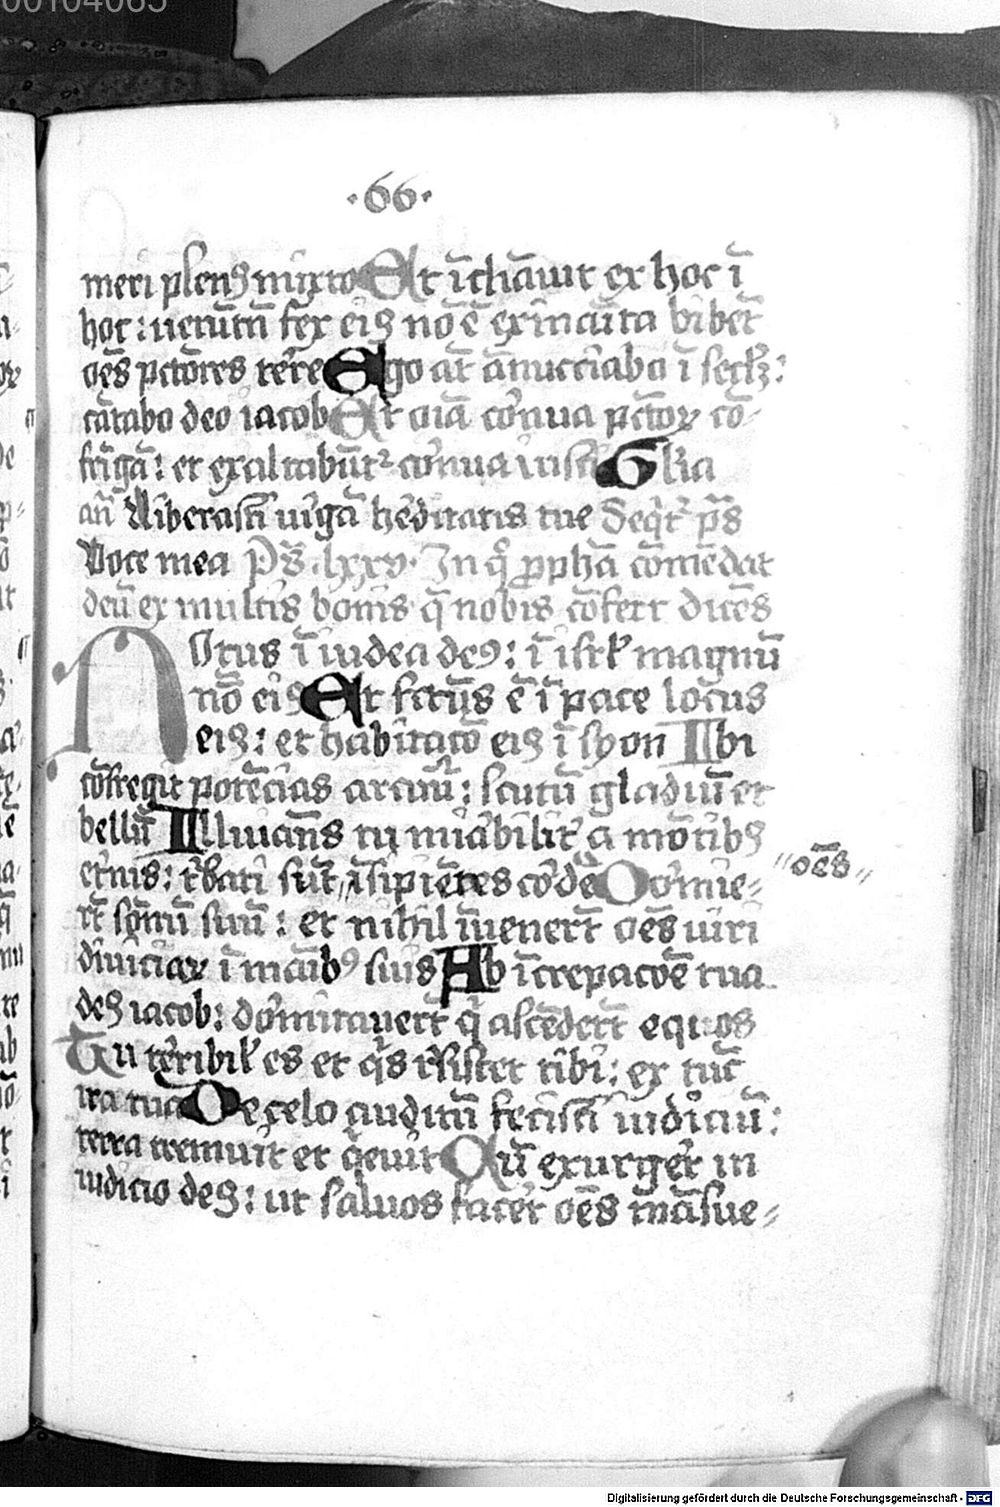 00104065
·66·
meri plenꝰ mixto Et īclīauit ex hoc ī
hoc: uerūtn̄ fex eiꝰ nō ē exīnaīta bibēt
oēs pctōres terre Ego aūt ānūcciabo ī seclꝫ:
cātabo deo iacob Et oīa cornua pctōꝝ cō-
frīgā: et exaltabūtᷣ cornua iusti Glīa
an̄ Liberasti uīgā hēditatis tue Seqt᷑ ps̄
Voce mea Ps̄. lxxv. In q̊ ꝓphā cōmēdat
deū ex multis bonis q̄ nobis cōfert dicēs
Notus ī iudea deꝰ: ī isrl̄ magnū
nō eiꝰ Et fctūs ē ī pace locus
eiꝰ: et habitaco̅ eiꝰ ī syon Ibi
cōfregit potēcias arcuū: scutū gladiū et
bellū Illuiāns tu mīabilit᷑ a mōtibꝰ
et᷑nis: t᷑bati sūt // īsipiētes corde Dormie-
"oēs"
rt̄ sōnū suū: et nihil īuenert̄ oēs uiri
diuiciaꝝ ī māibꝰ suis Ab īcrepacoē tua
deꝰ iacob: dormitauert̄ q̇ ascēdert̄ equos
Tu terribil̄ es et q̇s resistet tibi: ex tūc
ira tua De celo auditū fecisti iudiciū:
terra tremuit et q̇euit Cū exurget᷑ in
iudicio deꝰ: ut saluos facet᷑ oēs māsue-
Digitalisierung gefördert durch die Deutsche Forschungsgemeinschaft - DFG